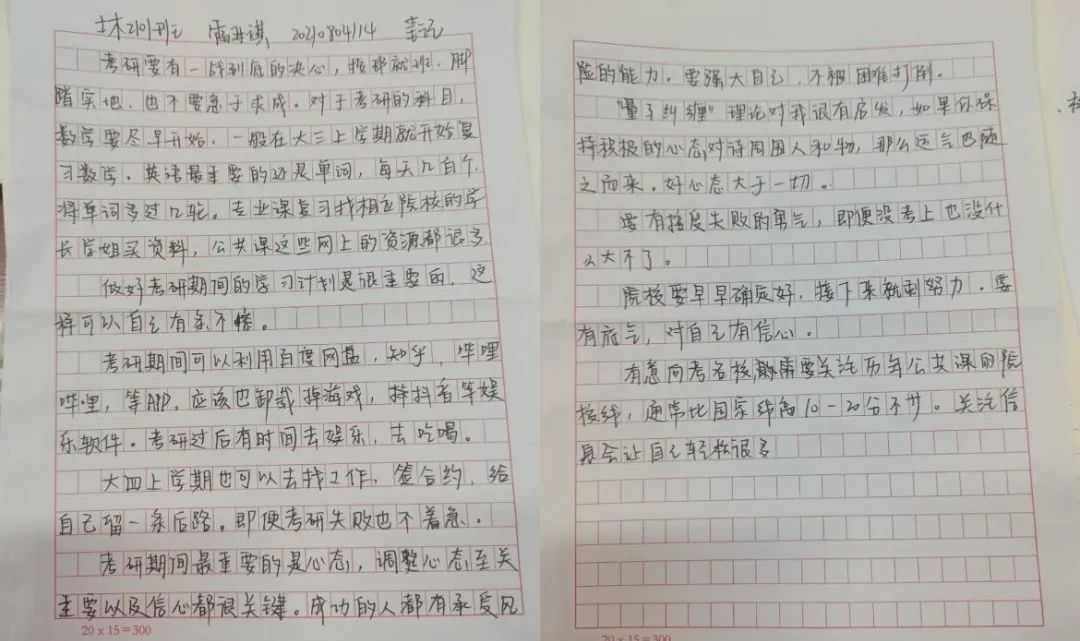 土木2101班 雷 琪 2021080414
考研要有一战到底的决心，按部就班，脚
踏实地，也不要急于求成。对于考研的科目，
数学要尽早开始，一般在大三上学期就开始复
习数学。英语最重要的还是单词，每天几百个，
将单词考过几轮。专业课复习找相应院校的学
长学姐买资料，公共课这些网上的资源都很多
做好考研期间的学习计划是很重要的，这
样可以自己有条不 。
考研期间可以利用百度网盘，知乎，哔哩
哔哩，等APP。应该也卸载掉游戏，持抖音等娱
乐软件。考研过后有时间去娱乐，去吃喝。
大四上学期也可以去找工作，签合约，给
自己留一条后路。即便考研失败也不着急。
考研期间最重要的是心态，调整心态至关
重要以及信心都很关键。成功的人都有承受风
20 x 15 = 300
险的能力。要强大自己，不被困难打倒。
"量子纠缠"理论对我很有启发，如果你保
持积极的心态对待周围人和物，那么运气也随
之而来。好心态大于一切。
要有接受失败的勇气，即便没考上也没什
么大不了。
院校要早早确定好，接下来就剩努力。要
有底气，对自己有信心。
有意向考名校， 需要关注历年公共课的院
校线，通常比国家线高10-20分不少。关注信
息会让自己轻松很多
20 x 15 = 300